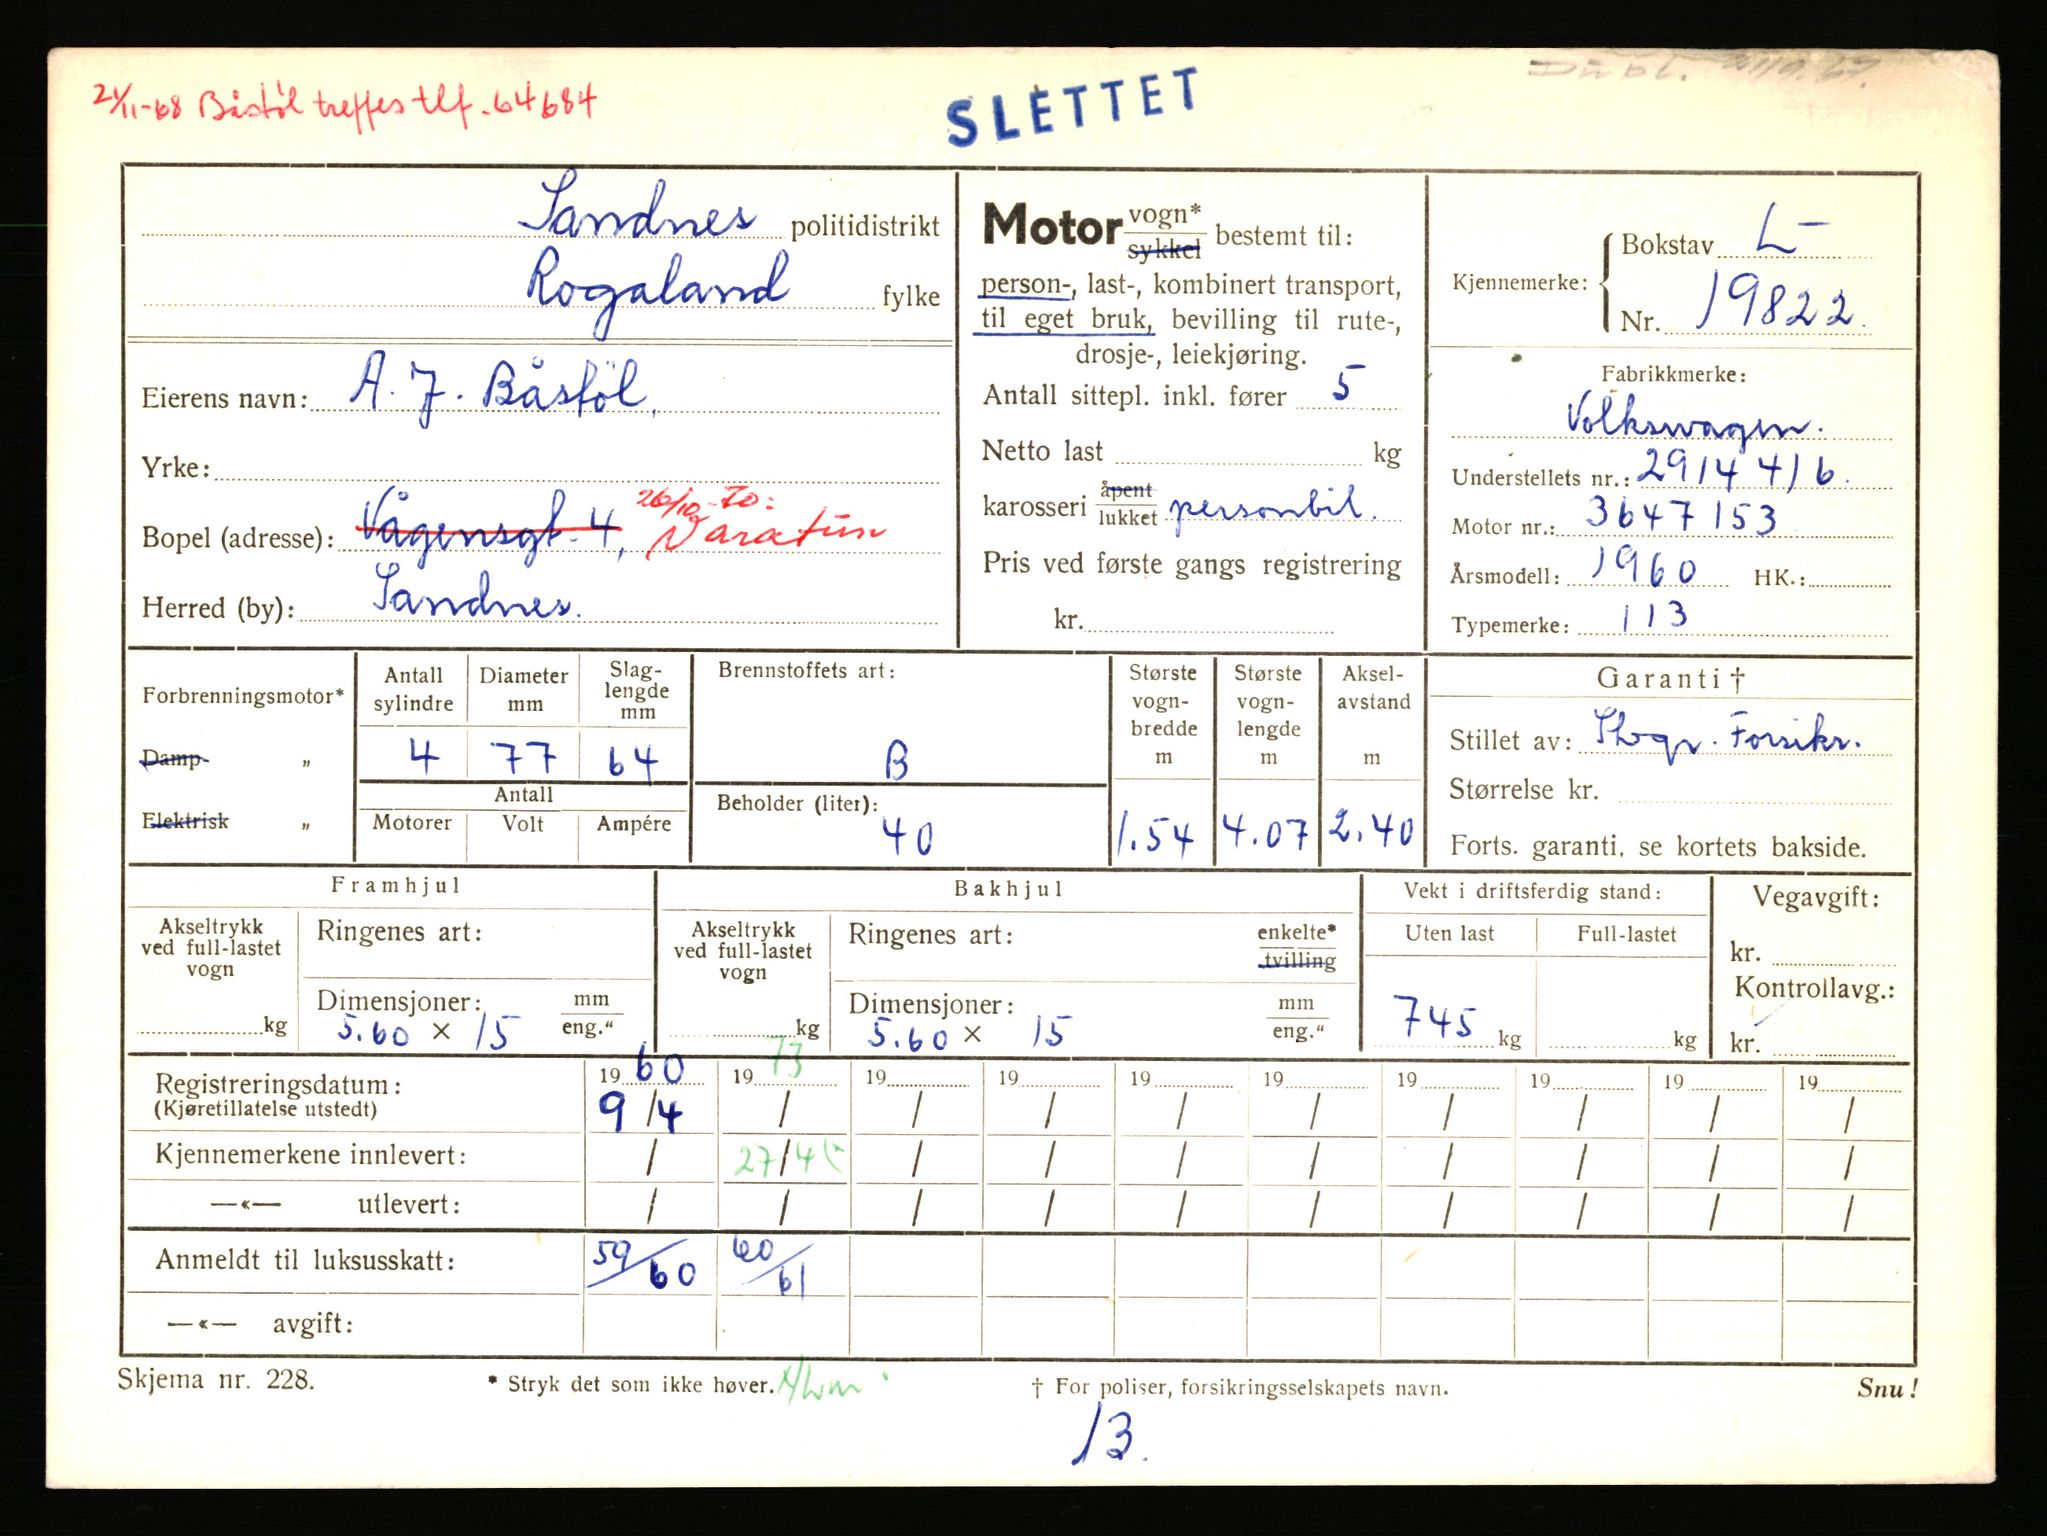 21/11-68 Båstøl treffes tlf. 64684
SLETTET
Dupl.
Sandnes politidistrikt
Rogaland fylke
Eierens navn: A. J. Båstøl.
Yrke:
Bopel (adresse): Vågensgt. 4, 26/10-70: Varatun
Herred (by): Sandnes.
Motor vogn* sykkel bestemt til:
person-, last-, kombinert transport,
til eget bruk, bevilling til rute-,
drosje-, leiekjøring.
Antall sittepl. inkl. fører 5
Netto last kg
karosseri åpent lukket personbil.
Pris ved første gangs registrering
kr.
Kjennemerke: Bokstav L-
Nr. 19822.
Fabrikkmerke:
Volkswagen.
Understellets nr.: 2914416.
Motor nr.: 3647153
Årsmodell: 1960 HK.:
Typemerke: 113
Forbrenningsmotor*
Damp- „
Elektrisk „
Antall sylindre Diameter mm Slag-lengde mm
4 77 64
Antall
Motorer Volt Ampére
Brennstoffets art:
B
Beholder (liter):
40
Største vogn-bredde m
1.54
Største vogn-lengde m
4.07
Aksel-avstand m
2.40
Garanti †
Stillet av: Forsikr.
Størrelse kr.
Forts. garanti, se kortets bakside.
Framhjul
Akseltrykk ved full-lastet vogn
kg
Ringenes art:
Dimensjoner: mm eng."
5.60 × 15
Bakhjul
Akseltrykk ved full-lastet vogn
kg
Ringenes art: enkelte* tvilling
Dimensjoner: mm eng."
5.60 × 15
Vekt i driftsferdig stand:
Uten last Full-lastet
745 kg kg
Vegavgift:
kr.
Kontrollavg.:
kr.
Registreringsdatum: 1960 1973 19 19 19 19 19 19 19 19
(Kjøretillatelse utstedt) 9/4 / / / / / / / / /
Kjennemerkene innlevert: / 27/4 / / / / / / / /
—«— utlevert: / / / / / / / / / /
Anmeldt til luksusskatt: 59/60 60/61
—«— avgift:
Skjema nr. 228. * Stryk det som ikke høver. † For poliser, forsikringsselskapets navn. Snu!
13.